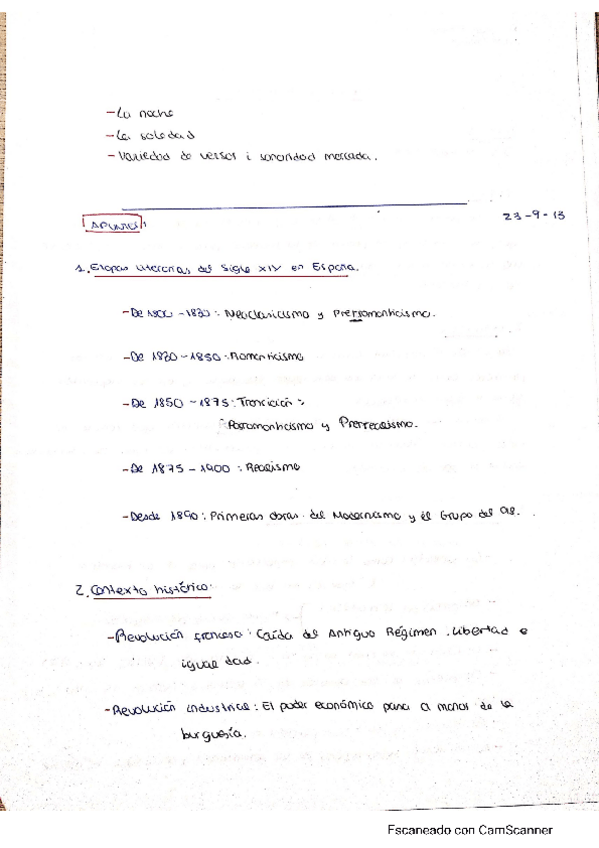 -La noche
-La soledad
-Variedad de versos i sonoridad marcada.
23-9-13
APUNTES:
1. Etapas literarias del Siglo XIV en España.
-De 1800-1830: Neoclasicismo y Prerromanticismo.
-De 1830-1850: Romanticismo
-De 1850-1875: Transición:
Posromanticismo y Prerrealismo.
-De 1875-1900: Realismo
-Desde 1890: Primeras obras del Modernismo y el Grupo del 98.
2. Contexto histórico:
-Revolución francesa: Caída del Antiguo Régimen. Libertad e
igualdad.
-Revolución industrial: El poder económico pasa a manos de la
burguesía.
Escaneado con CamScanner